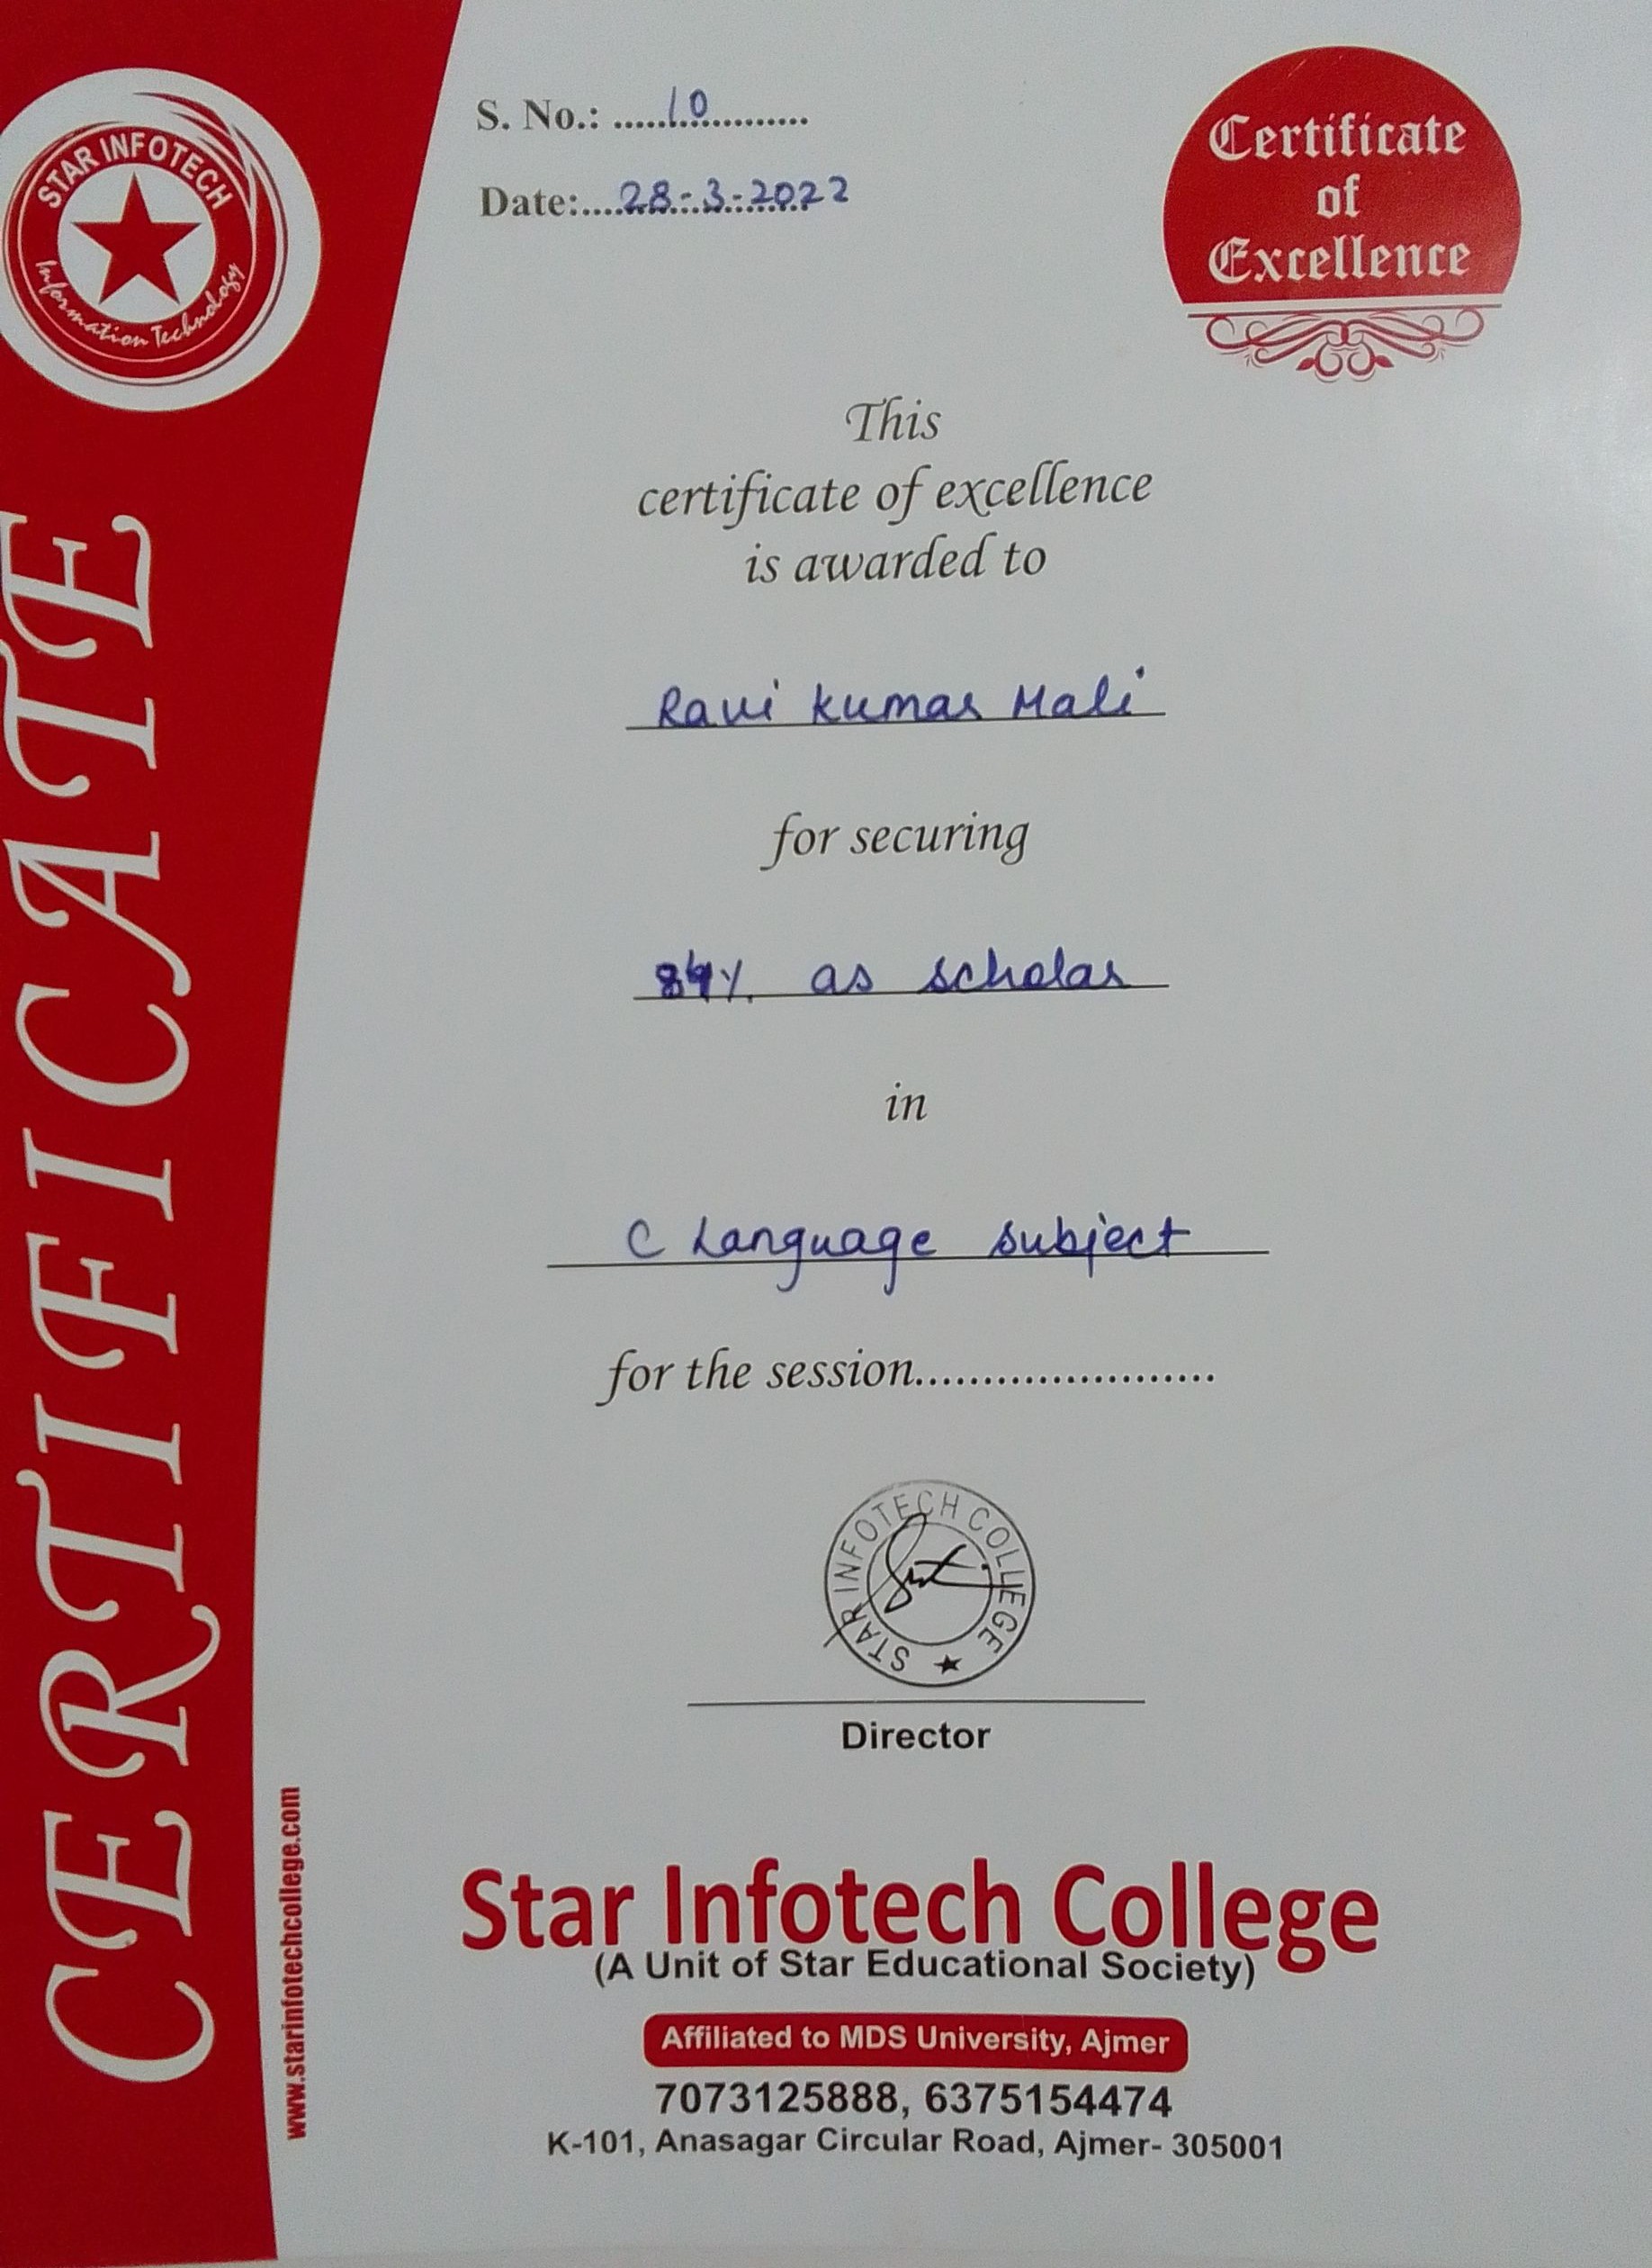 STAR INFOTECH
Information Technology
S. No.: .....10............
Date:....28-3-2022
Certificate
of
Excellence
CERTIFICATE
This
certificate of excellence
is awarded to
Ravi Kumar Mali
for securing
% as scholar
in
C Language subject
for the session.......................
STAR INFOTECH COLLEGE
Director
www.starinfotechcollege.com
Star Infotech College
(A Unit of Star Educational Society)
Affiliated to MDS University, Ajmer
7073125888, 6375154474
K-101, Anasagar Circular Road, Ajmer- 305001